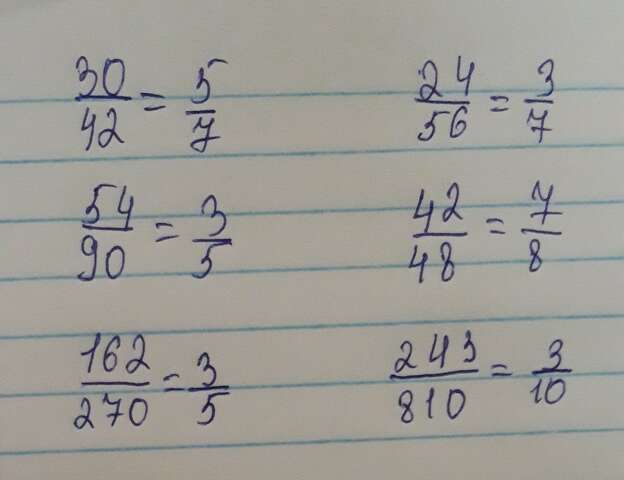 30/42 = 5/7    24/56 = 3/7
54/90 = 3/5    42/48 = 7/8
162/270 = 3/5    243/810 = 3/10